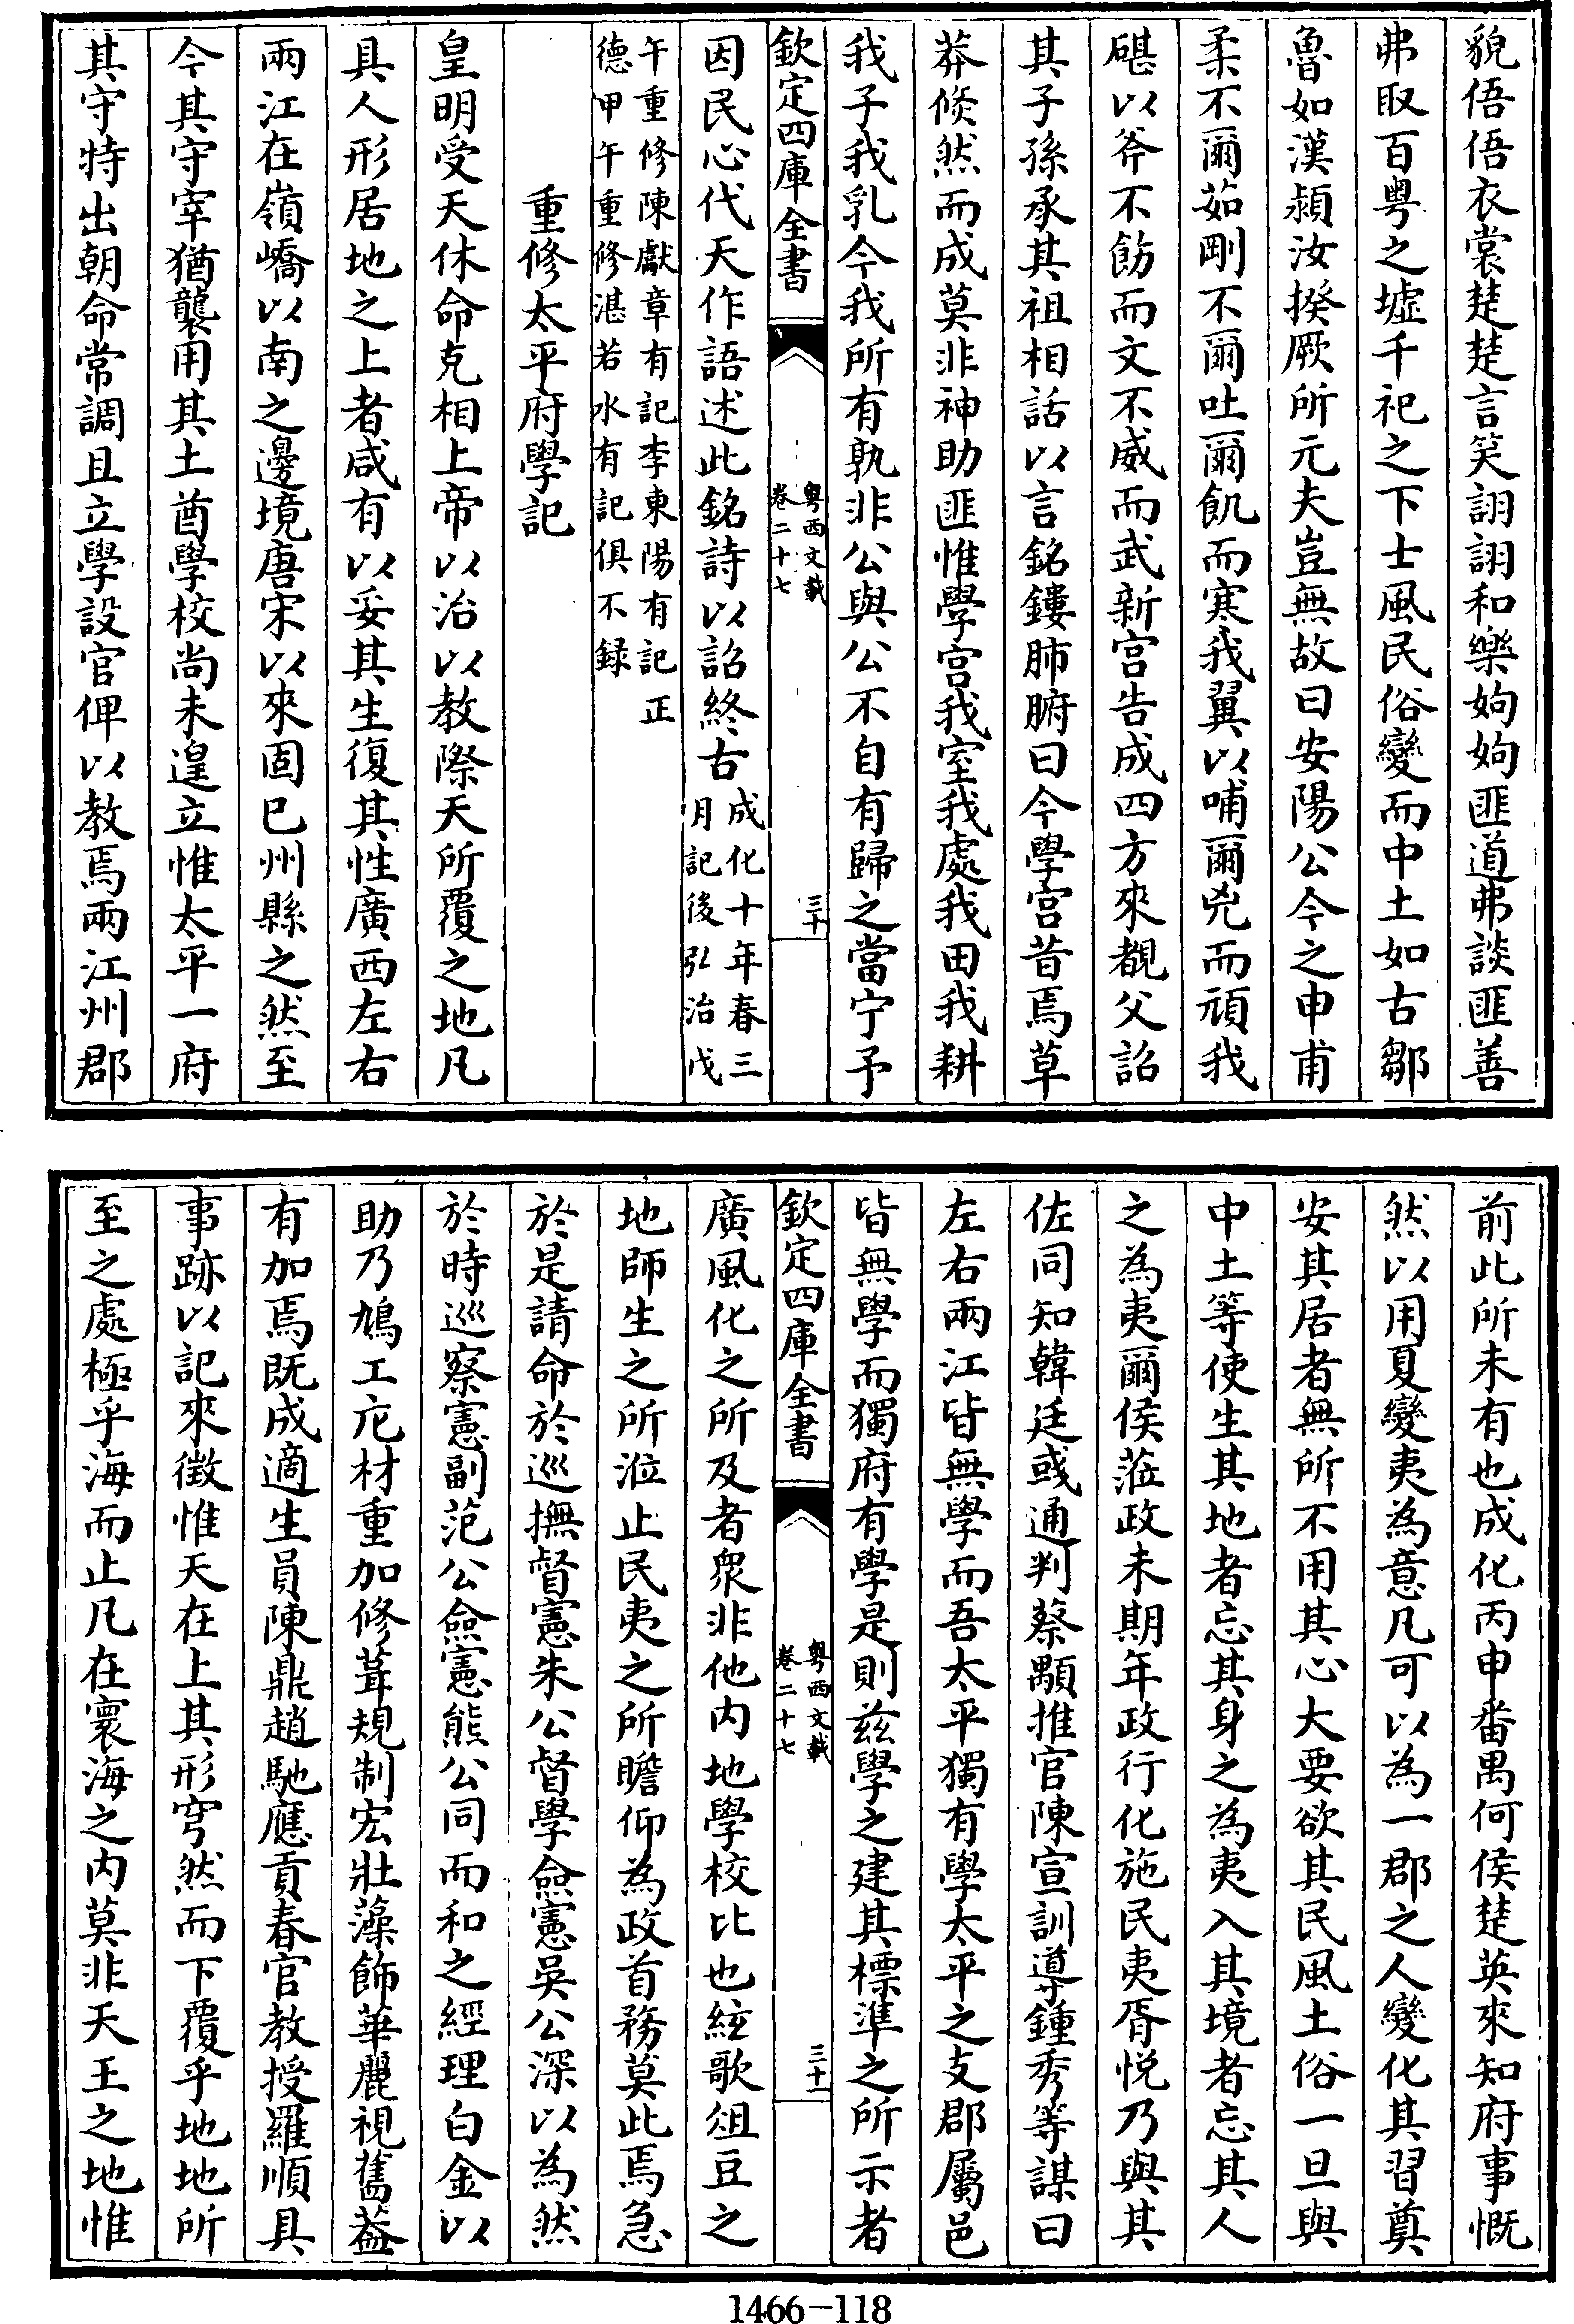 貌俉俉衣裳楚楚言笑詡詡和樂姁姁匪道弗談匪善
弗取百粤之墟千祀之下士風民俗變而中土如古鄒
魯如漢潁汝揆厥所元夫豈無故曰安陽公今之申甫
柔不爾茹剛不爾吐爾飢而寒我翼以哺爾兇而頑我
碪以斧不飭而文不威而武新宫告成四方來覩父詔
其子孫承其祖相話以言銘鏤肺腑曰今學宫昔焉草
莽倐然而成莫非神助匪惟學宫我室我處我田我耕
我子我乳今我所有孰非公與公不自有歸之當宁予
欽定四庫全書
粤西文載
卷二十七
三十
因民心代天作語述此銘詩以詔終古
成化十年春三
月記後弘治戊
午重修陳獻章有記李東陽有記正
德甲午重修湛若水有記俱不録
重修太平府學記
皇明受天休命克相上帝以治以教際天所覆之地凡
具人形居地之上者咸有以妥其生復其性廣西左右
兩江在嶺嶠以南之邊境唐宋以來固已州縣之然至
今其守宰猶襲用其土酋學校尚未遑立惟太平一府
其守特出朝命常調且立學設官俾以教焉兩江州郡
前此所未有也成化丙申番禺何侯楚英來知府事慨
然以用夏變夷為意凡可以為一郡之人變化其習奠
安其居者無所不用其心大要欲其民風土俗一旦與
中土等使生其地者忘其身之為夷入其境者忘其人
之為夷爾侯蒞政未期年政行化施民夷胥悦乃與其
佐同知韓廷彧通判蔡顒推官陳宣訓導鍾秀等謀曰
左右兩江皆無學而吾太平獨有學太平之支郡屬邑
皆無學而獨府有學是則兹學之建其標準之所示者
欽定四庫全書
粤西文載
卷二十七
三十一
廣風化之所及者衆非他内地學校比也絃歌俎豆之
地師生之所涖止民夷之所瞻仰為政首務莫此焉急
於是請命於巡撫督憲朱公督學僉憲吳公深以為然
於時巡察憲副范公僉憲熊公同而和之經理白金以
助乃鳩工庀材重加修葺規制宏壯藻飾華麗視舊葢
有加焉既成適生員陳鼎趙馳應貢春官教授羅順具
事跡以記來徴惟天在上其形穹然而下覆乎地地所
至之處極乎海而止凡在寰海之内莫非天王之地惟
1466-118